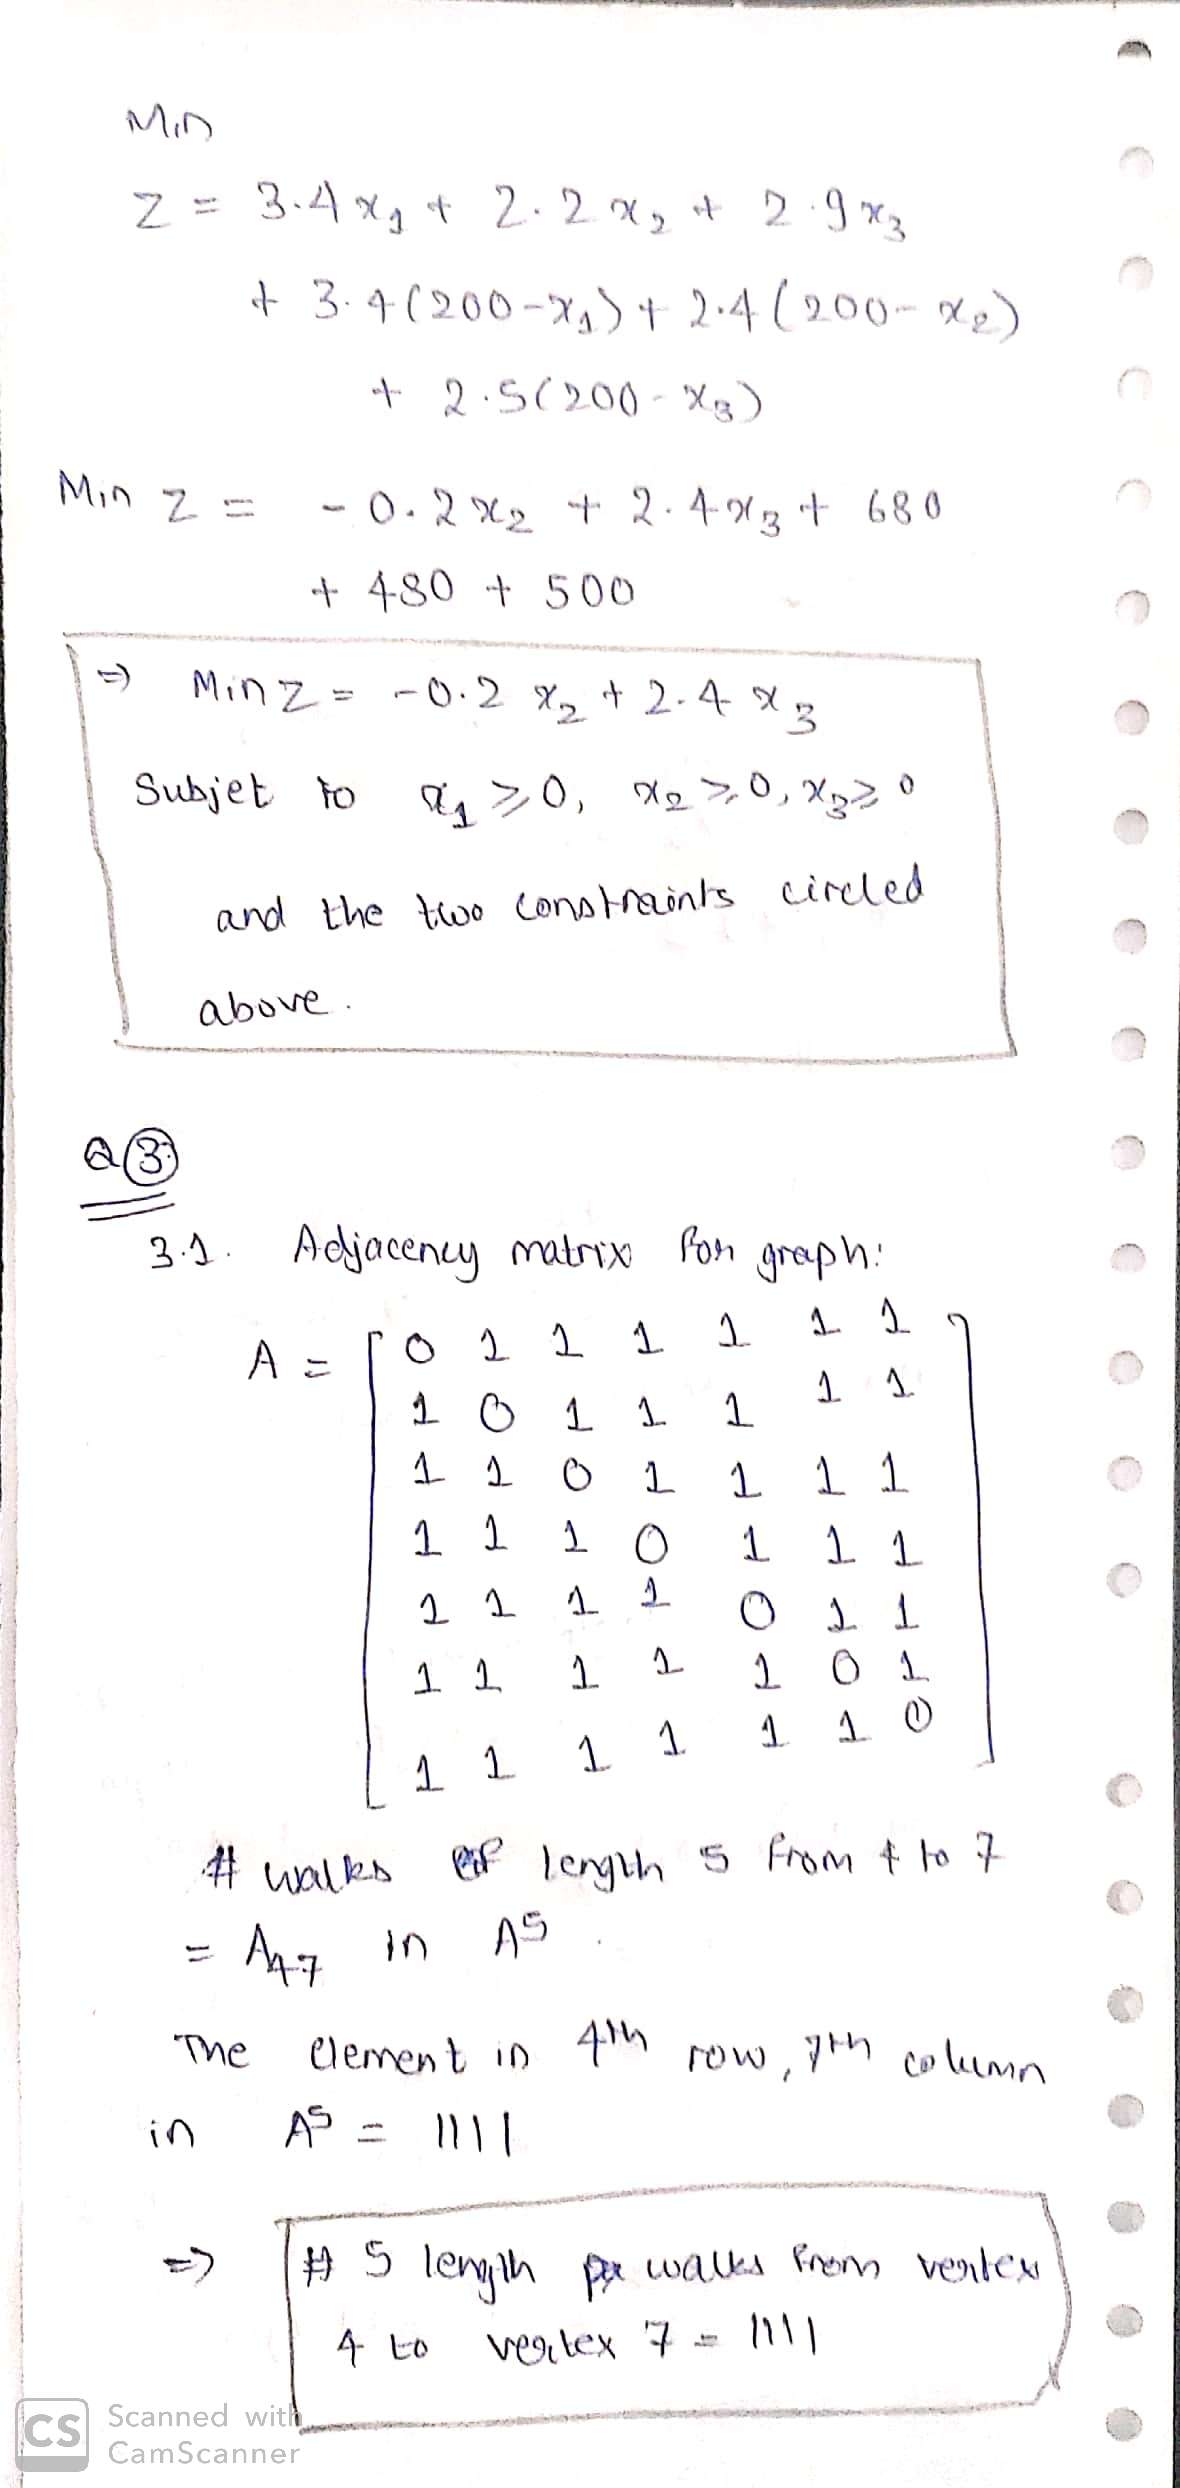 Min
Z = 3.4x₁ + 2.2x₂ + 2.9x₃
+ 3.4(200-x₁) + 2.4(200-x₂)
+ 2.5(200-x₃)
Min Z = -0.2x₂ + 2.4x₃ + 680
+ 480 + 500
⇒ Min Z = -0.2 x₂ + 2.4 x₃
Subjet to x₁ ≥ 0, x₂ ≥ 0, x₃ ≥ 0
and the two constraints circled
above.
Q3.
3.1. Adjacency matrix for graph:
A = [0 1 1 1 1 1 1
1 0 1 1 1 1 1
1 1 0 1 1 1 1
1 1 1 0 1 1 1
1 1 1 1 0 1 1
1 1 1 1 1 0 1
1 1 1 1 1 1 0]
# walks of length 5 from 4 to 7
= A₄₇ in A⁵.
The element in 4th row, 7th column
in A⁵ = 1111
⇒ # 5 length walks from vertex
4 to vertex 7 = 1111
CS Scanned with
CamScanner